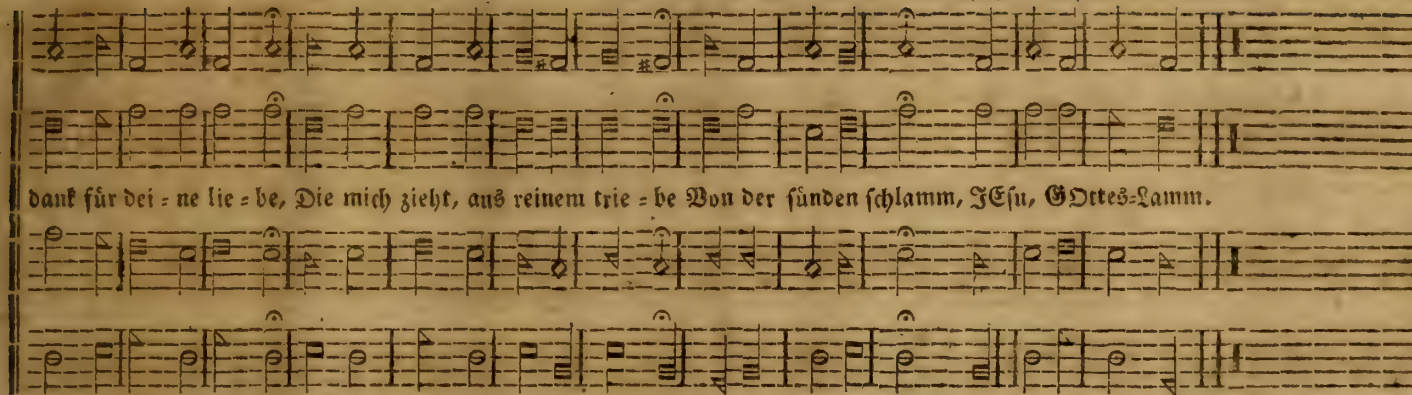 dank für dei = ne lie = be, Die mich zieht, aus reinem trie = be Von der sünden schlamm, JEsu, GOttes=Lamm.